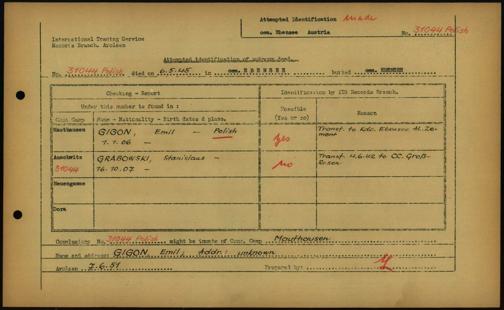 Attempted Identification made
com. Ebensee Austria 31044 Polish
International Tracing Service
Records Branch, Arolsen
Attempted identification of unknown dead.
No. 31044 Polish died on 6.5.45 in com. EBENSEE buried com. EBENSEE
Checking - Report
Identification by ITS Records Branch.
Under this number is found in :
Possible (Yes or no)
Reason
Conc Camp Name - Nationality - Birth dates & place.
Mauthausen GIGON, Emil - Polish
1.1.06 -
Yes
Transf. to Kdo. Ebensee
Auschwitz GRABOWSKI, Stanislaus -
31044 16.10.07 -
no
Transf. 4.6.42 to CC. Groß-
Rosen
Neuengamme
Dora
No. 31044 Polish might be inmate of Conc. Camp Mauthausen
Name and address: GIGON, Emil, Addr.: unknown
Arolsen 7.6.51 Prepared by: